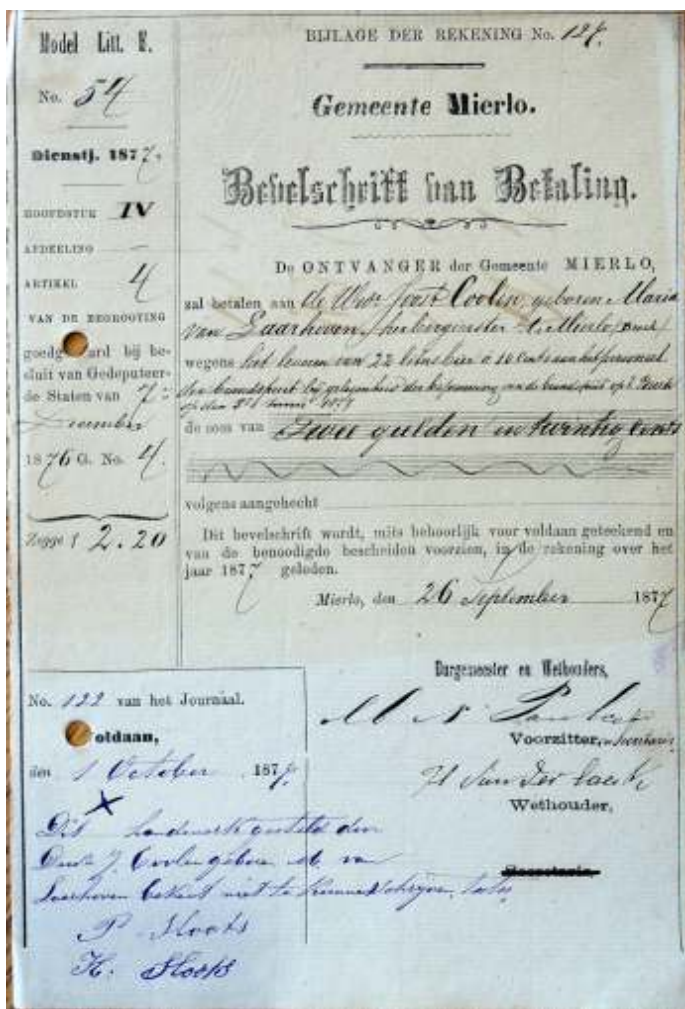 Model Litt. F.
No. 54
Dienstj. 1877.
HOOFDSTUK IV
AFDEELING —
ARTIKEL 4
VAN DE BEGROOTING
goedgekeurd bij be-
sluit van Gedeputeer-
de Staten van 7
December
1876 G. No. 4.
Zegge f 2.20
BIJLAGE DER REKENING No. 127.
Gemeente Mierlo.
Bevelschrift van Betaling.
De ONTVANGER der Gemeente MIERLO,
zal betalen aan de Wed. Joost Coolen, geboren Maria
van Laarhoven, herbergierster te Mierlo
wegens het leveren van 22 liters bier à 10 Cents aan het personeel
der brandspuit bij gelegenheid der beproeving van de brandspuit op
de som van Twee gulden en twintig Cents
volgens aangehecht
Dit bevelschrift wordt, mits behoorlijk voor voldaan geteekend en
van de benoodigde bescheiden voorzien, in de rekening over het
jaar 1877 geleden.
Mierlo, den 26 September 1877
Burgemeester en Wethouders,
Voorzitter, en Secretaris
Wethouder,
Secretaris.
No. 122 van het Journaal.
Voldaan,
den 1 October 1877.
X
Dit handmerk gesteld door
J. Coolen geboren M. van
Laarhoven bekent niet te kunnen schrijven
P Slaats
H. Slaats